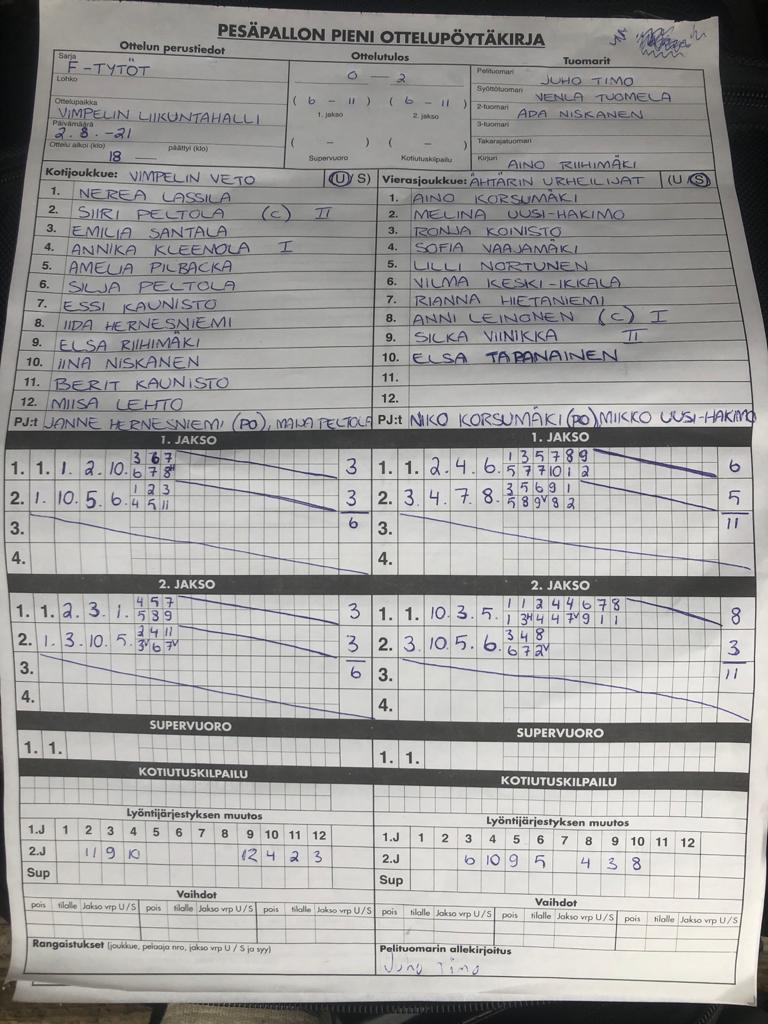 PESÄPALLON PIENI OTTELUPÖYTÄKIRJA
Ottelun perustiedot
Sarja
F-TYTÖT
Lohko
Ottelupaikka
VIMPELIN LIIKUNTAHALLI
Päivämäärä
2.8.-21
Ottelu alkoi (klo) 18 päättyi (klo) —
Ottelutulos
0 — 2
( 6 - 11 ) ( 6 - 11 )
1. jakso 2. jakso
( - ) ( - )
Supervuoro Kotiutuskilpailu
Tuomarit
Pelituomari JUHO TIMO
Syöttötuomari VENLA TUOMELA
2-tuomari ADA NISKANEN
3-tuomari
Takarajatuomari
Kirjuri AINO RIIHIMÄKI
Kotijoukkue: VIMPELIN VETO (U/ S)
1. NEREA LASSILA
2. SIIRI PELTOLA (C) II
3. EMILIA SANTALA
4. ANNIKA KLEENOLA I
5. AMELIA PILBACKA
6. SILJA PELTOLA
7. ESSI KAUNISTO
8. IIDA HERNESNIEMI
9. ELSA RIIHIMÄKI
10. IINA NISKANEN
11. BERIT KAUNISTO
12. MIISA LEHTO
PJ:t JANNE HERNESNIEMI (PO), MAIJA PELTOLA
Vierasjoukkue: ÄHTÄRIN URHEILIJAT (U/S)
1. AINO KORSUMÄKI
2. MELINA UUSI-HAKIMO
3. RONJA KOIVISTO
4. SOFIA VAAJAMÄKI
5. LILLI NORTUNEN
6. VILMA KESKI-IKKALA
7. RIANNA HIETANIEMI
8. ANNI LEINONEN (C) I
9. SILKA VIINIKKA II
10. ELSA TAPANAINEN
11.
12.
PJ:t NIKO KORSUMÄKI (PO) MIKKO UUSI-HAKIMO
1. JAKSO
3 6 7
1. 1. 1. 2. 10. 6 7 8H 3
1 2 3
2. 1. 10. 5. 6. 4 5 11 3
3. 6
4.
1. JAKSO
1 3 5 7 8 9
1. 1. 2. 4. 6. 5 7 7 10 1 2 6
3 5 6 9 1
2. 3. 4. 7. 8. 5 8 9V 8 2 5
3. 11
4.
2. JAKSO
4 5 7
1. 1. 2. 3. 1. 5 8 9 3
2 4 11
2. 1. 3. 10. 5. 3V 6 7V 3
3. 6
4.
2. JAKSO
1 1 2 4 4 6 7 8
1. 1. 10. 3. 5. 1 3H 4 4 7V 9 1 1 8
3 4 8
2. 3. 10. 5. 6. 6 7 2V 3
3. 11
4.
SUPERVUORO
1. 1.
SUPERVUORO
1. 1.
KOTIUTUSKILPAILU
KOTIUTUSKILPAILU
Lyöntijärjestyksen muutos
1.J 1 2 3 4 5 6 7 8 9 10 11 12
2.J 11 9 10 12 4 2 3
Sup
Lyöntijärjestyksen muutos
1.J 1 2 3 4 5 6 7 8 9 10 11 12
2.J 6 10 9 5 4 3 8
Sup
Vaihdot
pois tilalle Jakso vrp U / S pois tilalle Jakso vrp U / S pois tilalle Jakso vrp U / S
Vaihdot
pois tilalle Jakso vrp U / S pois tilalle Jakso vrp U / S pois tilalle Jakso vrp U / S
Rangaistukset (joukkue, pelaaja nro, jakso vrp U / S ja syy)
Pelituomarin allekirjoitus
Juho Timo